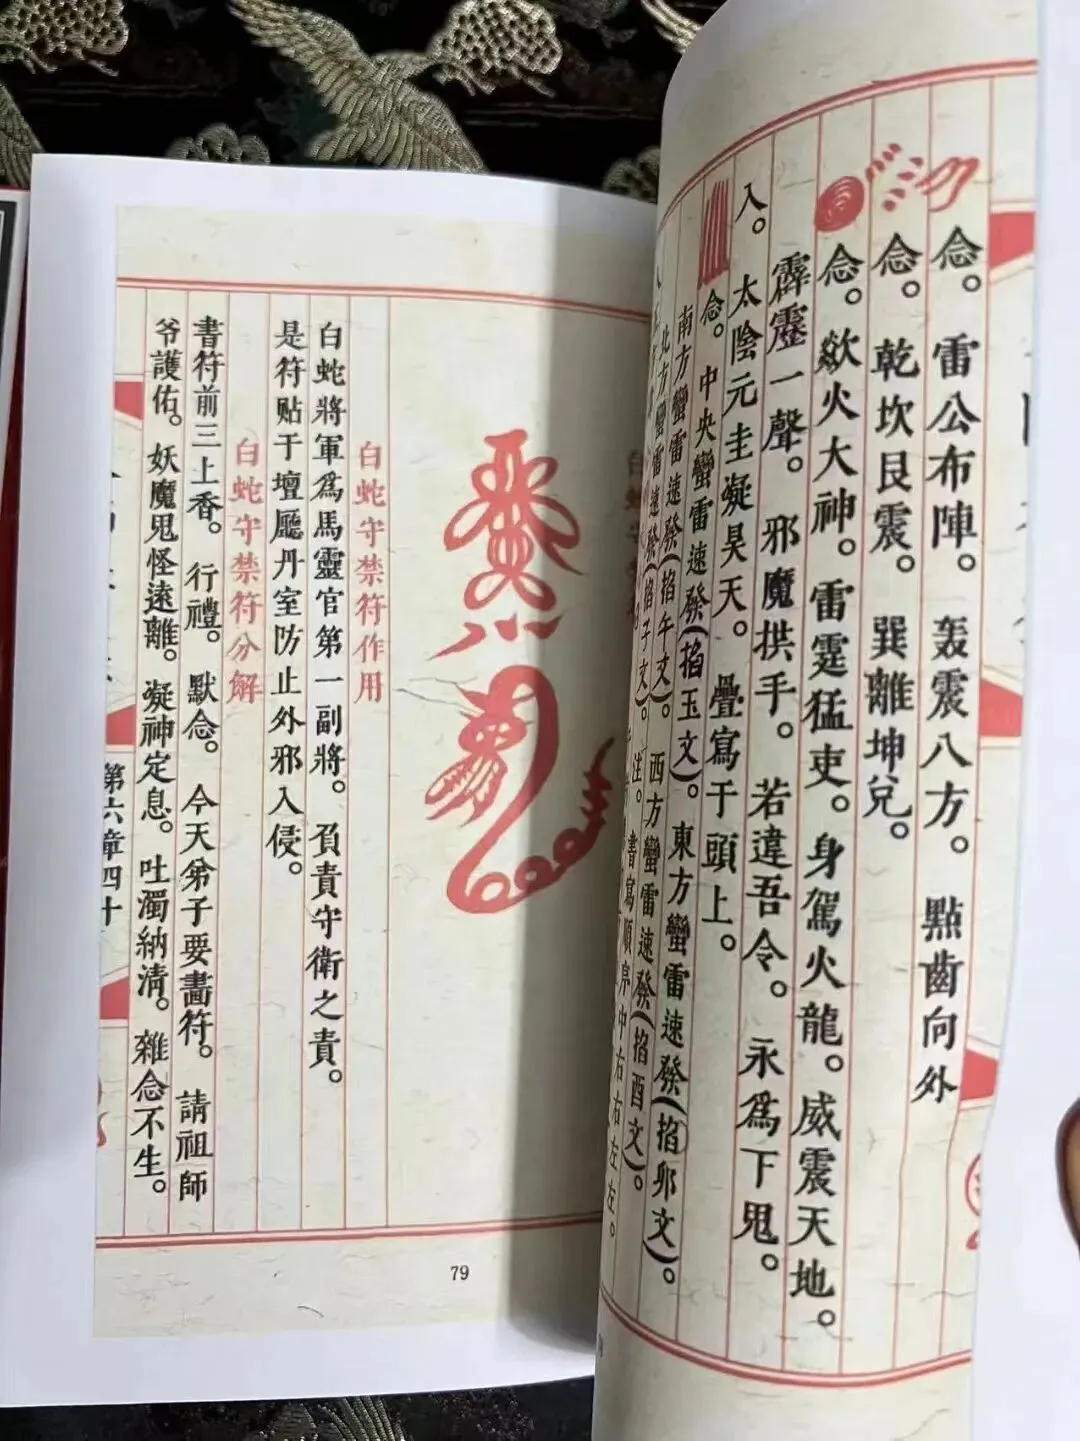 念。雷公布陣。轰震八方。點齒向外
念。乾坎艮震。巽離坤兌。
念。歘火大神。雷霆猛吏。身駕火龍。威震天地。
霹靂一聲。邪魔拱手。若違吾令。永爲下鬼。
入。太陰元圭凝昊天。疊寫于頭上。
念。中央蠻雷速發(掐玉文)。東方蠻雷速發(掐卯文)。
南方蠻雷速發(掐午文)。西方蠻雷速發(掐酉文)。
北方蠻雷速發(掐子文)。注。書寫順序中右右左左。
白蛇守禁符作用
白蛇將軍爲馬靈官第一副將。負責守衛之責。
是符贴于壇廳丹室防止外邪入侵。
白蛇守禁符分解
書符前三上香。行禮。默念。今天弟子要畵符。請祖師
爷護佑。妖魔鬼怪遠離。凝神定息。吐濁納清。雜念不生。
第六章四十
79